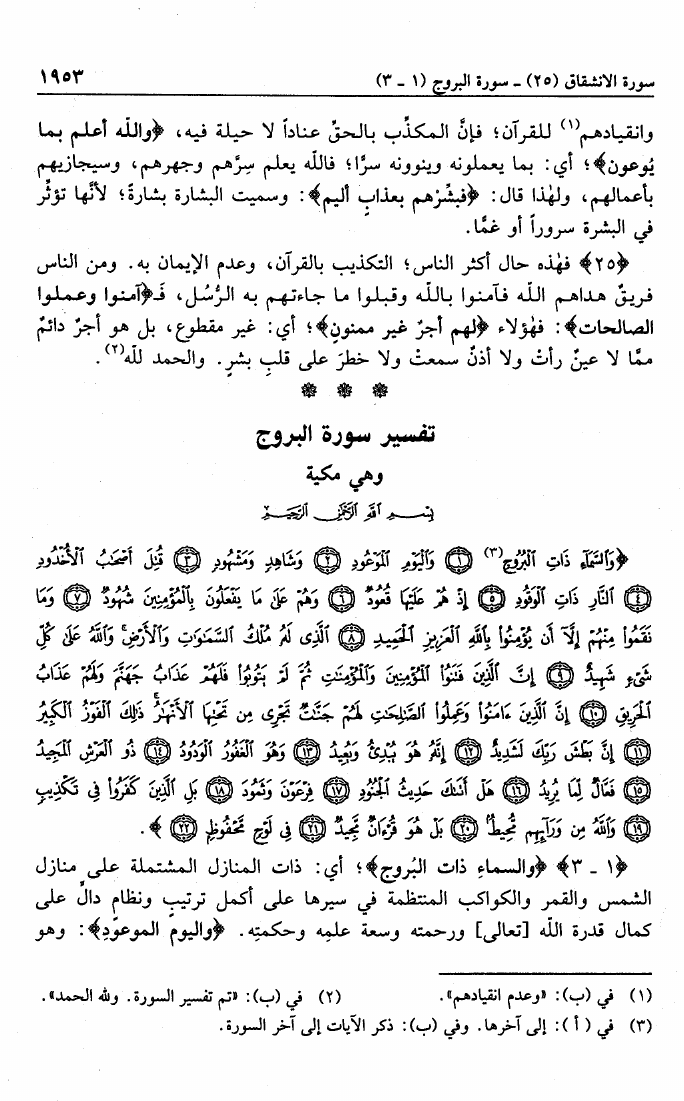 سورة الانشقاق (٢٥) ـ سورة البروج (١ ـ ٣) ١٩٥٣
وانقيادهم(١) للقرآن؛ فإنَّ المكذِّب بالحقِّ عناداً لا حيلة فيه، ﴿واللّه أعلم بما
يُوعون﴾؛ أي: بما يعملونه وينوونه سرًّا؛ فاللّه يعلم سِرَّهم وجهرهم، وسيجازيهم
بأعمالهم، ولهٰذا قال: ﴿فبشِّرْهم بعذابٍ أليم﴾: وسميت البشارة بشارةً؛ لأنَّها تؤثِّر
في البشرة سروراً أو غمًّا.
﴿٢٥﴾ فهٰذه حال أكثر الناس؛ التكذيب بالقرآن، وعدم الإيمان به. ومن الناس
فريقٌ هداهم اللّه فآمنوا باللّه وقبلوا ما جاءتهم به الرُّسُل، فَـ﴿آمنوا وعملوا
الصالحات﴾: فهٰؤلاء ﴿لهم أجرٌ غير ممنونٍ﴾؛ أي: غير مقطوع، بل هو أجرٌ دائمٌ
ممَّا لا عينٌ رأتْ ولا أذنٌ سمعتْ ولا خطرَ على قلبِ بشرٍ. والحمد للّه(٢).
تفسير سورة البروج
وهي مكية
بِسْمِ اللَّهِ الرَّحْمَٰنِ الرَّحِيمِ
﴿وَالسَّمَآءِ ذَاتِ الْبُرُوجِ(٣) ١ وَالْيَوْمِ الْمَوْعُودِ ٢ وَشَاهِدٍ وَمَشْهُودٍ ٣ قُتِلَ أَصْحَابُ الْأُخْدُودِ
٤ النَّارِ ذَاتِ الْوَقُودِ ٥ إِذْ هُمْ عَلَيْهَا قُعُودٌ ٦ وَهُمْ عَلَىٰ مَا يَفْعَلُونَ بِالْمُؤْمِنِينَ شُهُودٌ ٧ وَمَا
نَقَمُوا۟ مِنْهُمْ إِلَّآ أَن يُؤْمِنُوا۟ بِاللَّهِ الْعَزِيزِ الْحَمِيدِ ٨ الَّذِى لَهُۥ مُلْكُ السَّمَٰوَٰتِ وَالْأَرْضِ ۚ وَاللَّهُ عَلَىٰ كُلِّ
شَىْءٍ شَهِيدٌ ٩ إِنَّ الَّذِينَ فَتَنُوا۟ الْمُؤْمِنِينَ وَالْمُؤْمِنَٰتِ ثُمَّ لَمْ يَتُوبُوا۟ فَلَهُمْ عَذَابُ جَهَنَّمَ وَلَهُمْ عَذَابُ
الْحَرِيقِ ١٠ إِنَّ الَّذِينَ ءَامَنُوا۟ وَعَمِلُوا۟ الصَّٰلِحَٰتِ لَهُمْ جَنَّٰتٌ تَجْرِى مِن تَحْتِهَا الْأَنْهَٰرُ ۚ ذَٰلِكَ الْفَوْزُ الْكَبِيرُ
١١ إِنَّ بَطْشَ رَبِّكَ لَشَدِيدٌ ١٢ إِنَّهُۥ هُوَ يُبْدِئُ وَيُعِيدُ ١٣ وَهُوَ الْغَفُورُ الْوَدُودُ ١٤ ذُو الْعَرْشِ الْمَجِيدُ
١٥ فَعَّالٌ لِّمَا يُرِيدُ ١٦ هَلْ أَتَىٰكَ حَدِيثُ الْجُنُودِ ١٧ فِرْعَوْنَ وَثَمُودَ ١٨ بَلِ الَّذِينَ كَفَرُوا۟ فِى تَكْذِيبٍ
١٩ وَاللَّهُ مِن وَرَآئِهِم مُّحِيطٌ ٢٠ بَلْ هُوَ قُرْءَانٌ مَّجِيدٌ ٢١ فِى لَوْحٍ مَّحْفُوظٍ ٢٢﴾.
﴿١ ـ ٣﴾ ﴿والسماءِ ذات البُروج﴾؛ أي: ذات المنازل المشتملة على منازل
الشمس والقمر والكواكب المنتظمة في سيرها على أكمل ترتيبٍ ونظامٍ دالٍّ على
كمال قدرة اللّه [تعالى] ورحمته وسعة علمِه وحكمتِه. ﴿واليوم الموعودِ﴾: وهو
(١) في (ب): «وعدم انقيادهم». (٢) في (ب): «تم تفسير السورة. وللّه الحمد».
(٣) في (أ): إلى آخرها. وفي (ب): ذكر الآيات إلى آخر السورة.